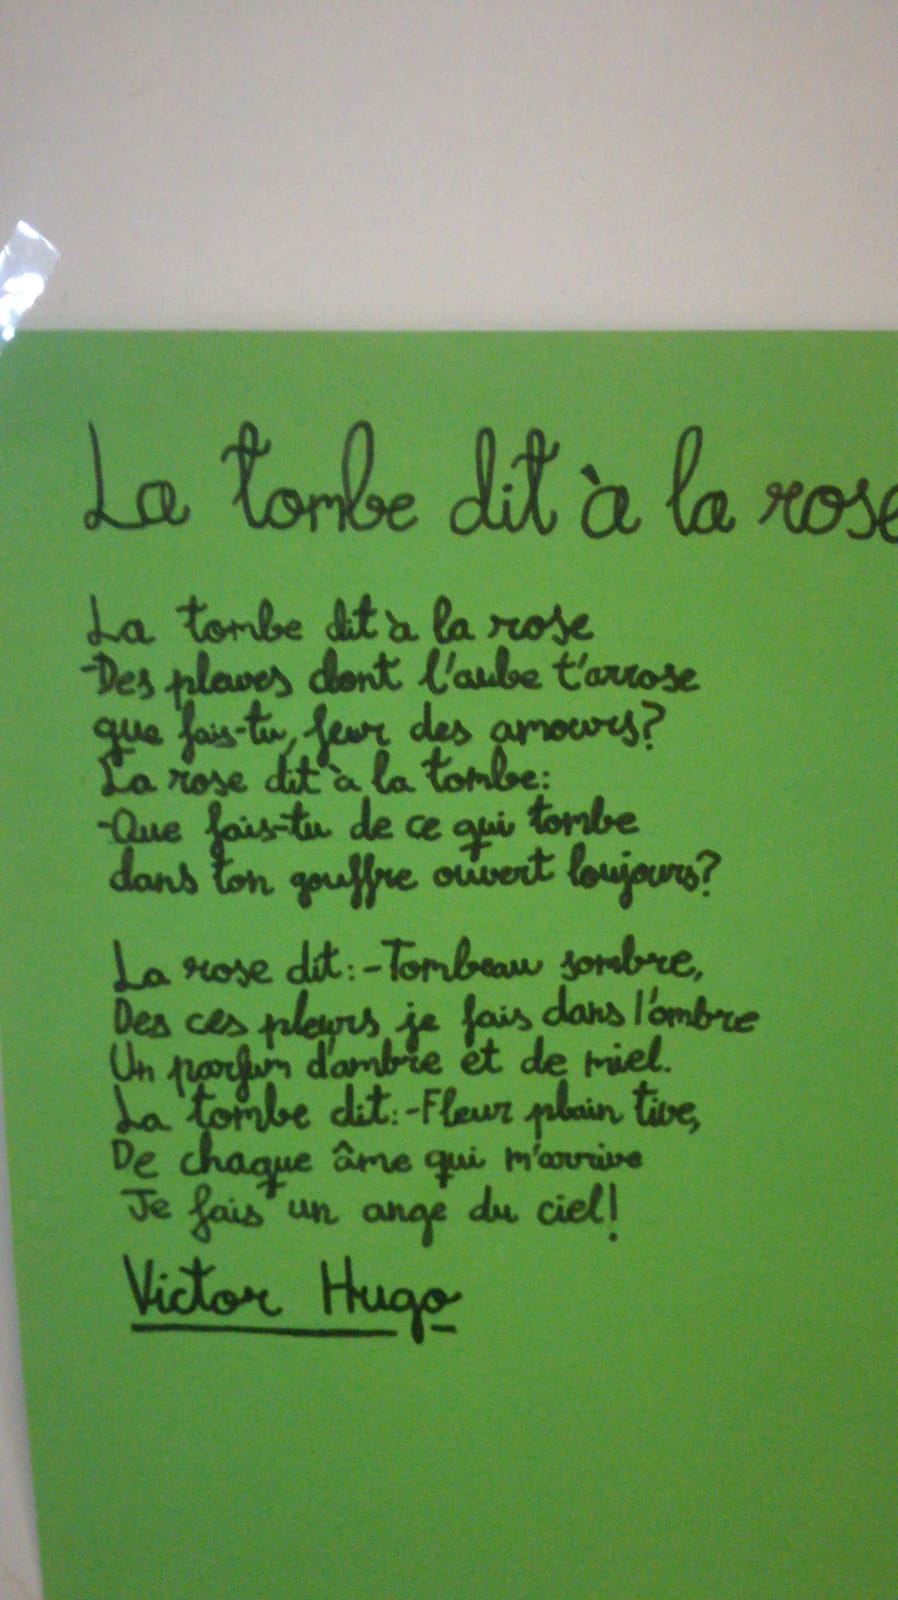 La tombe dit à la rose
La tombe dit à la rose
-Des pleures dont l'aube t'arrose
que fais-tu, feur des amours?
La rose dit à la tombe:
-Que fais-tu de ce qui tombe
dans ton gouffre ouvert toujours?
La rose dit:-Tombeau sombre,
Des ces pleurs je fais dans l'ombre
Un parfum d'ambre et de miel.
La tombe dit:-Fleur plain tive,
De chaque âme qui m'arrive
Je fais un ange du ciel!
Victor Hugo